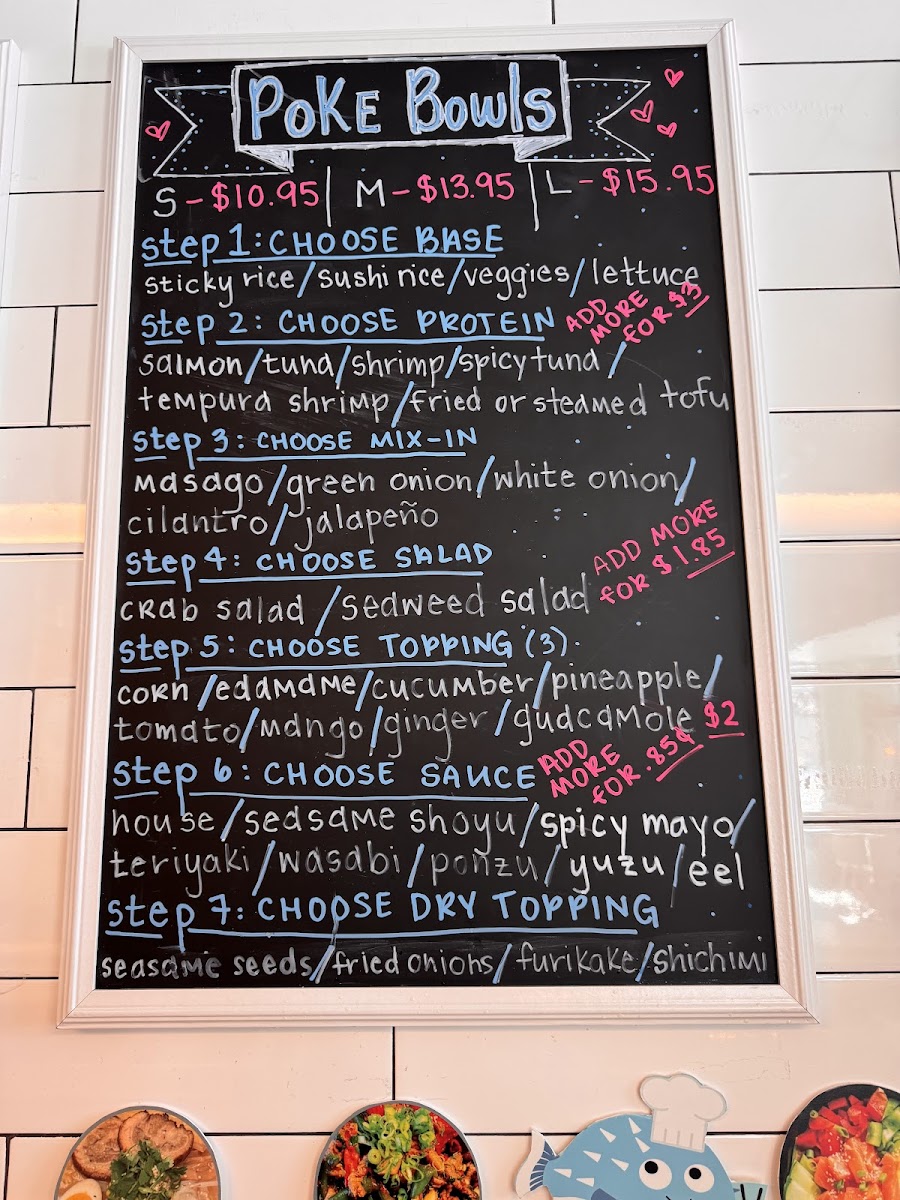 Poke Bowls
S - $10.95 | M - $13.95 | L - $15.95
Step 1: CHOOSE BASE
sticky rice / sushi rice / veggies / lettuce
Step 2: CHOOSE PROTEIN
ADD MORE FOR $3
salmon / tuna / shrimp / spicy tuna /
tempura shrimp / fried or steamed tofu
Step 3: CHOOSE MIX-IN
masago / green onion / white onion /
cilantro / jalapeño
Step 4: CHOOSE SALAD
ADD MORE FOR $1.85
crab salad / seaweed salad
Step 5: CHOOSE TOPPING (3)
corn / edamame / cucumber / pineapple /
tomato / mango / ginger / guacamole $2
Step 6: CHOOSE SAUCE
ADD MORE FOR .85¢
house / seasame shoyu / spicy mayo /
teriyaki / wasabi / ponzu / yuzu / eel
Step 7: CHOOSE DRY TOPPING
seasame seeds / fried onions / furikake / shichimi